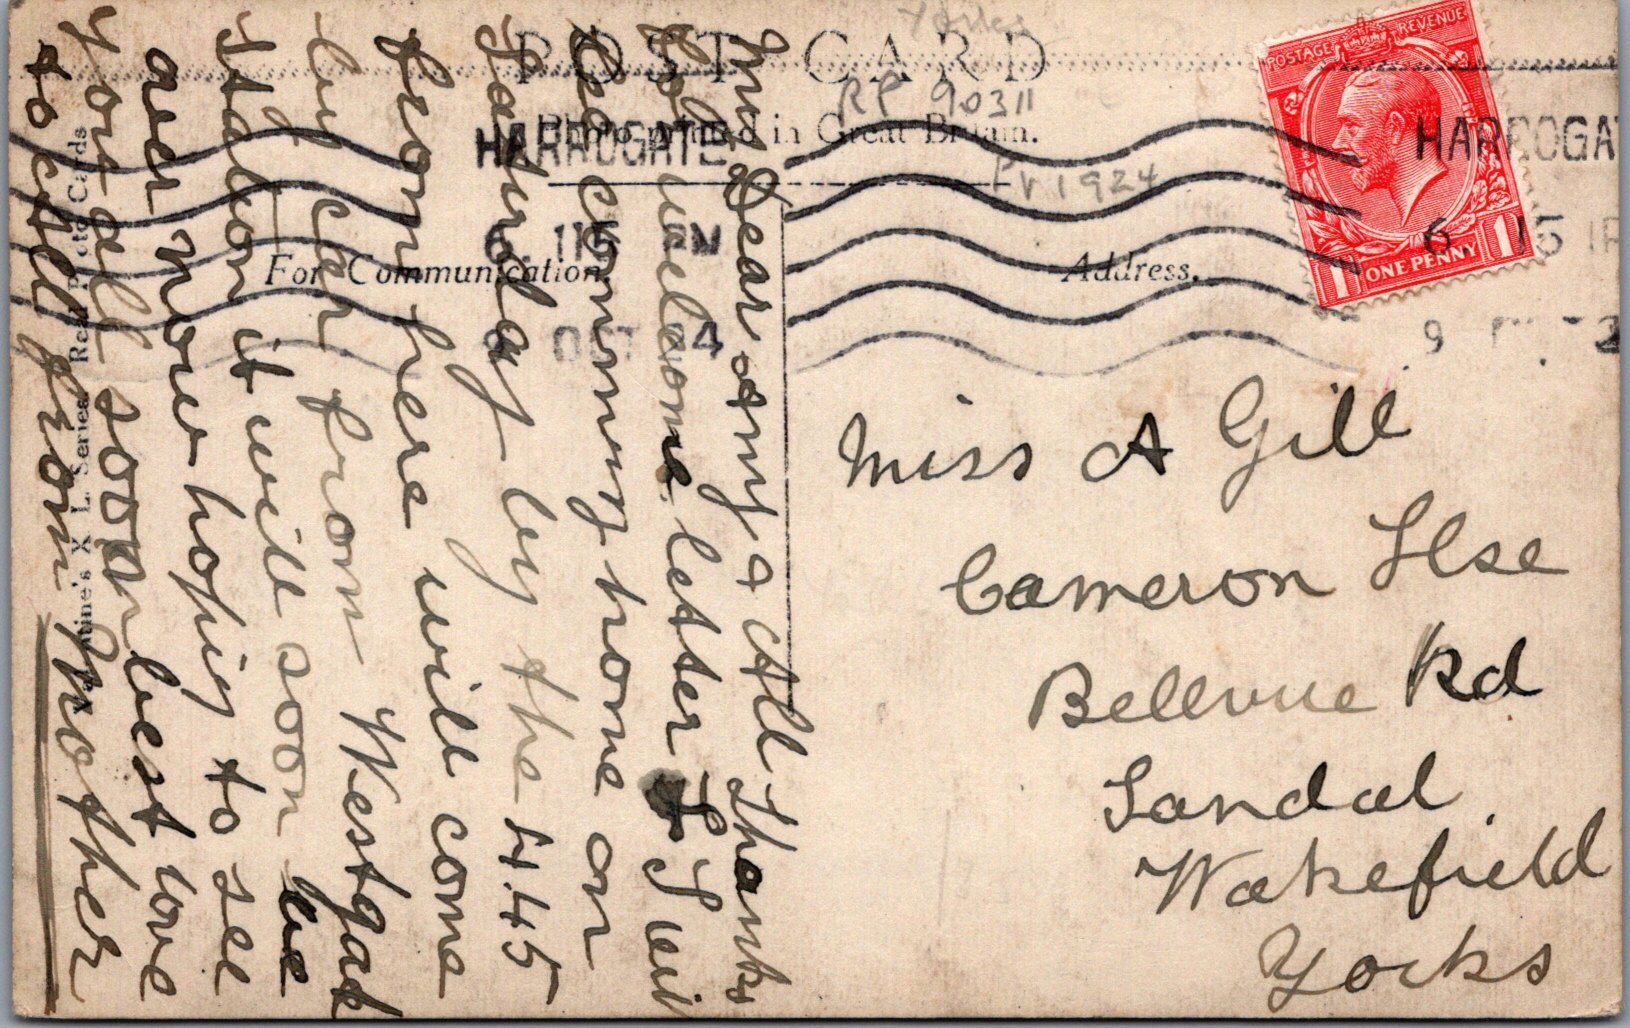 Yorks
POST CARD
RP 90311
Photo printed in Great Britain.
Pu 1924
POSTAGE REVENUE
1 ONE PENNY 1
HARROGATE
6. 115 PM
9 OCT 24
HARROGAT
6 15 P
9
For Communication.
Address.
Valentine's X L Series Real Photo Cards
My Dear Amy & All Thanks
for welcome letter I will
be coming home on
Saturday by the 4.45
from here will come
by car from Westgate
Station it will soon be
over now hoping to see
you all soon best love
to all from Mother
Miss A Gill
Cameron Hse
Bellvue Rd
Sandal
Wakefield
Yorks